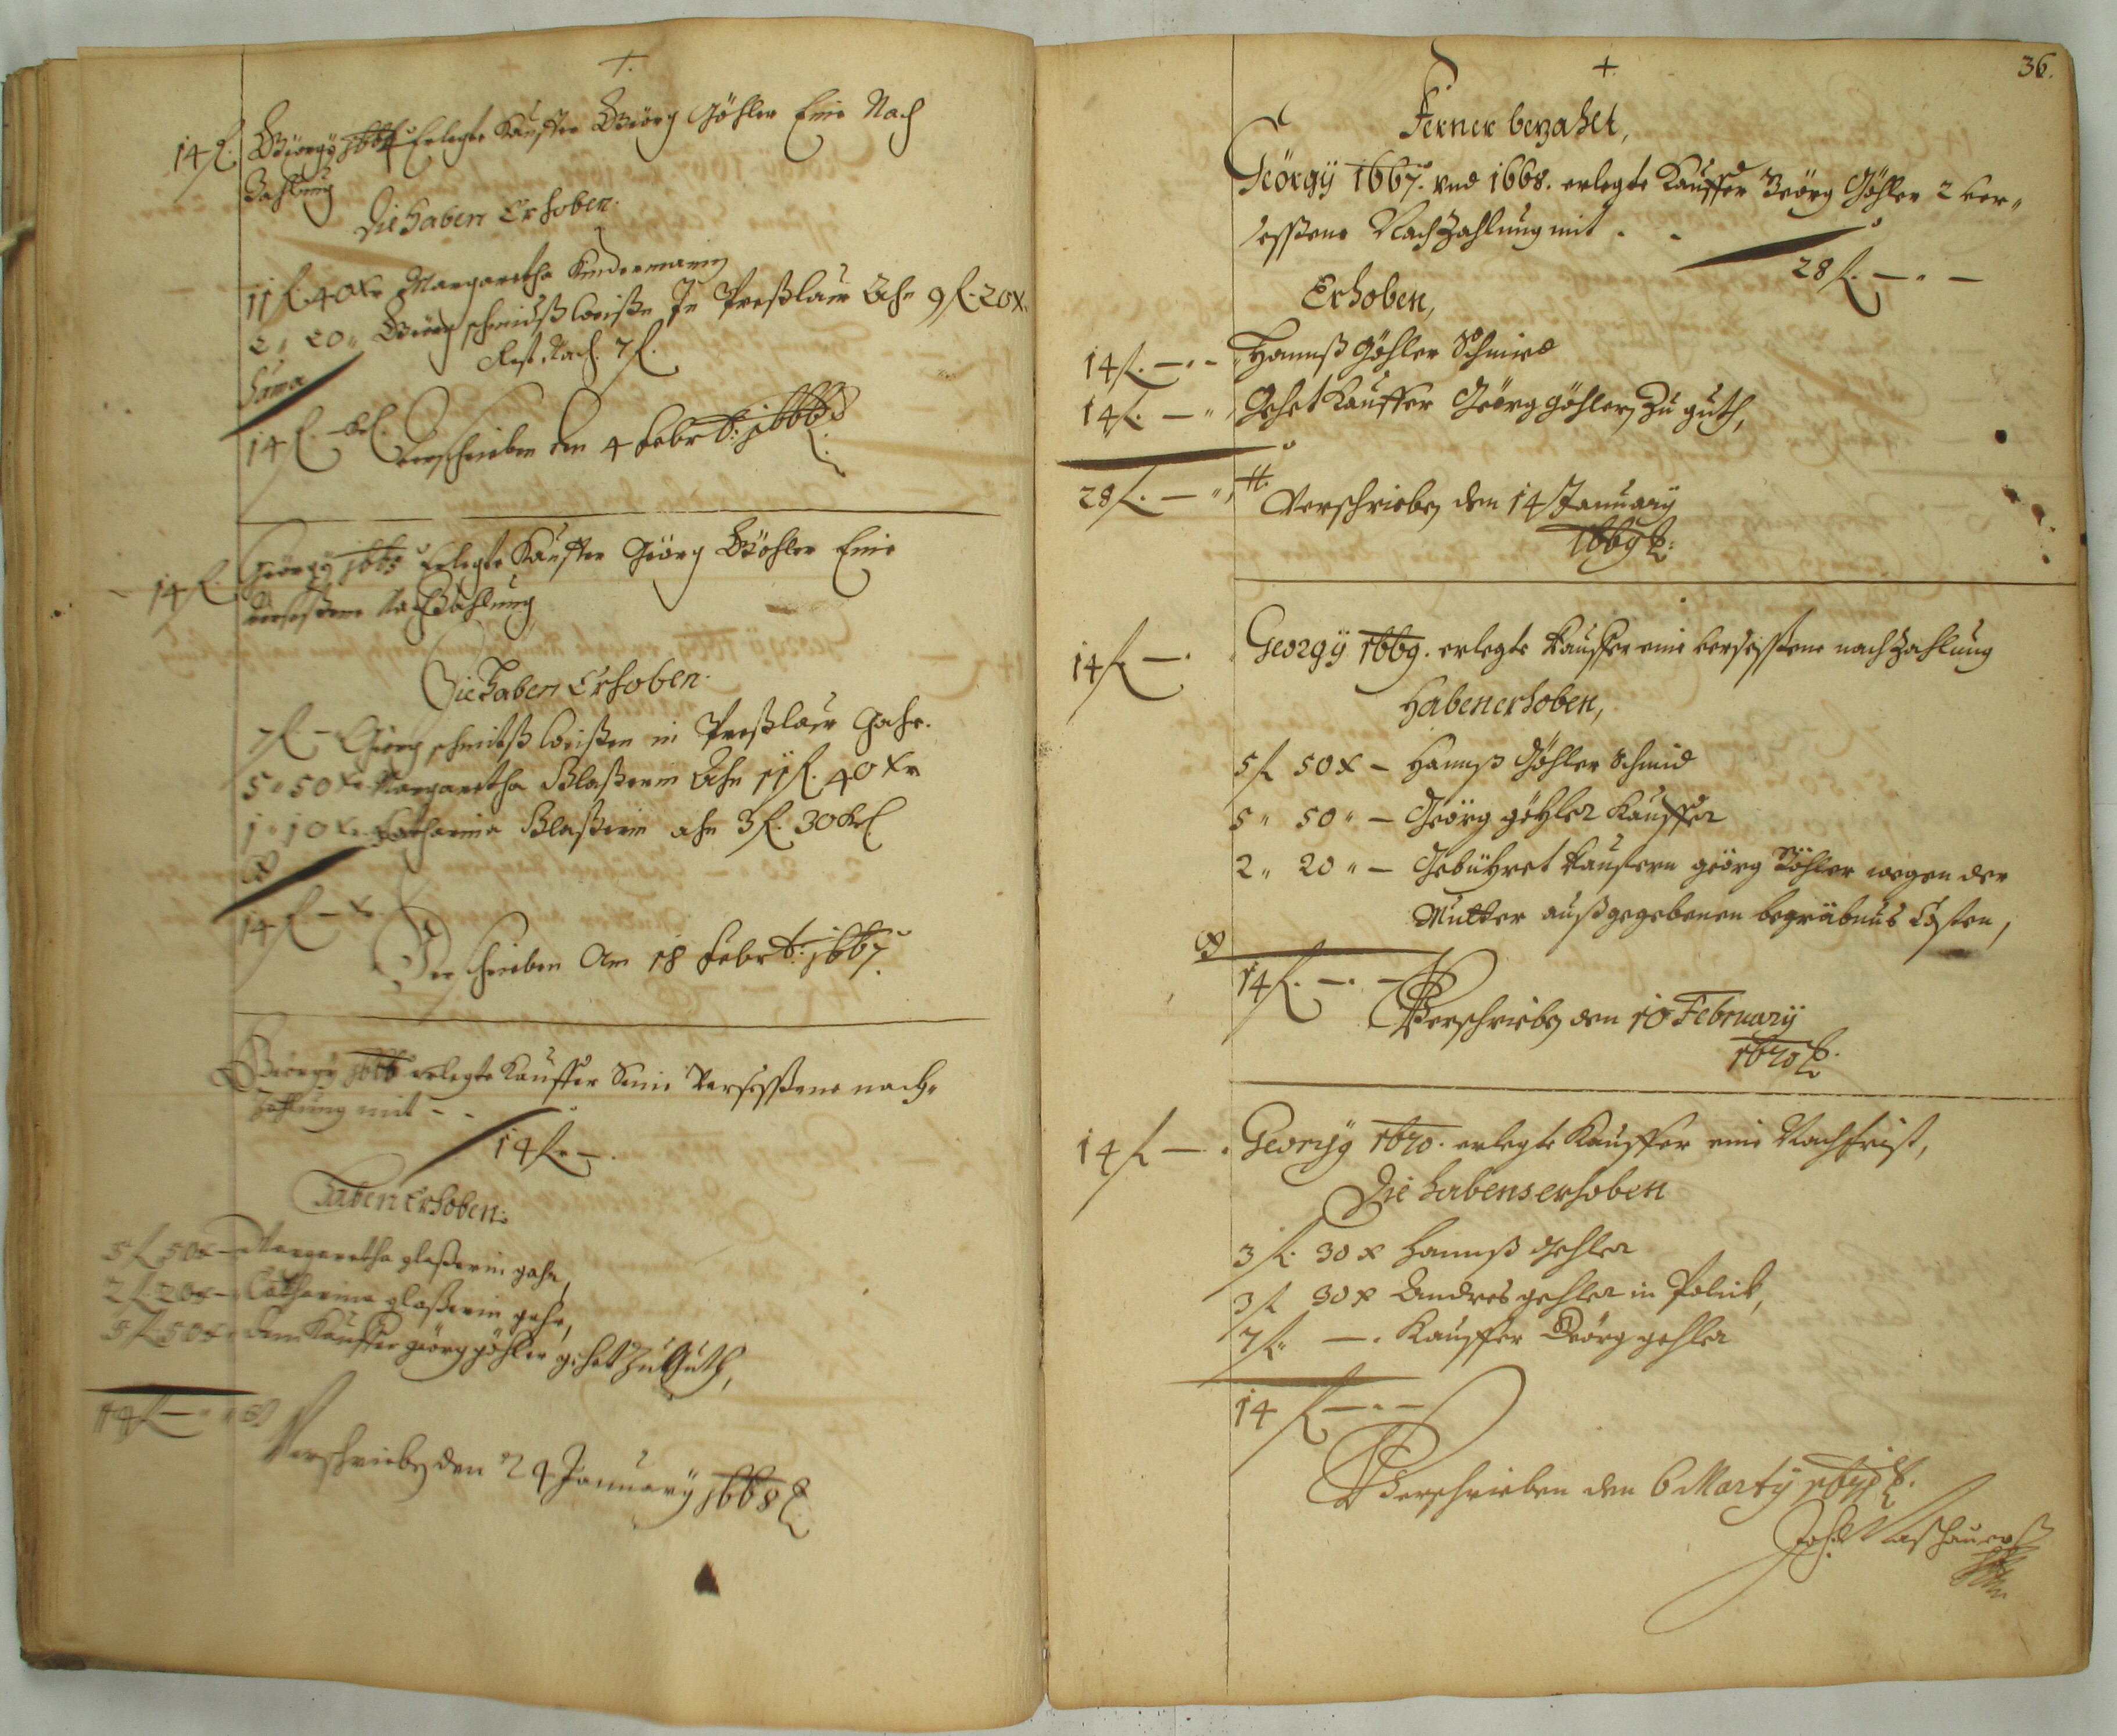 +.
14 fl. Görgÿ 1664 Erlegte Kauffer Görg Göhler Eine Nach
Zahlung
Die haben Erhoben.
11 fl. 40 xr Margaretha Kindermannin
2 " 20 " Görg schmidß In Preßlaw 9 fl. 20 x.
Rest Nach 7 fl.
Suma
14 fl. Verschrieben den 4 Febr
14 fl. Geörgÿ 1665 Erlegte Kauffer Geörg Göhler Eine
versessene NachZahlung
Die haben Erhoben.
7 fl — Georg schmidß in Preßlaw
5 " 50 xr Margaretha Glaßerin 11 fl. 40 xr
1 " 10 xr Catharina Glaßerin ahn 3 fl. 30
14 fl — x
Verschrieben Am 18 Febr 1667.
Geörgÿ 1666 erlegte Kauffer Eine Versessene nach-
Zahlung mit - -
14 fl. —.
Haben Erhoben:
5 fl. 50 x — Margaretha glaßerin
2 fl. 20 x — Catharina glaßerin
5 fl. 50 x — dem Kauffer georg göhler gehet Zu Guth,
14 fl. —
Verschrieben den 24 January 1668
+.
36.
Ferner bezahlet,
Geörgÿ 1667. vnd 1668. erlegte Kauffer Geörg Göhler 2 ver„
sessene NachZahlung mit . -
28 fl. — . —
Erhoben,
14 fl. — . - Hannß Göhler Schmied
14 fl. — " Gehet Kauffer Geörg göhler Zu guth,
28 fl. — "
Verschrieben den 14 January
1669
14 fl. — . Georgÿ 1669. erlegte Kauffer eine versessene nachZahlung
Haben erhoben,
5 fl 50 x — Hannß Göhler Schmid
5 " 50 " — Geörg göhler Kauffer
2 " 20 " — Gebühret Kauffern geörg Göhler wegen der
Mutter außgegebenen begräbnus Costen,
14 fl. — . —
Verschrieben den 10 February
1670
14 fl — . Georgÿ 1670. erlegte Kauffer eine Nachfrist,
Die habens erhoben
3 fl. 30 x Hannß Gehler
3 fl 30 x Andres gehler in
7 fl. — . Kauffer Geörg gehler
14 fl — . —
Verschrieben den 6 Marty 1671